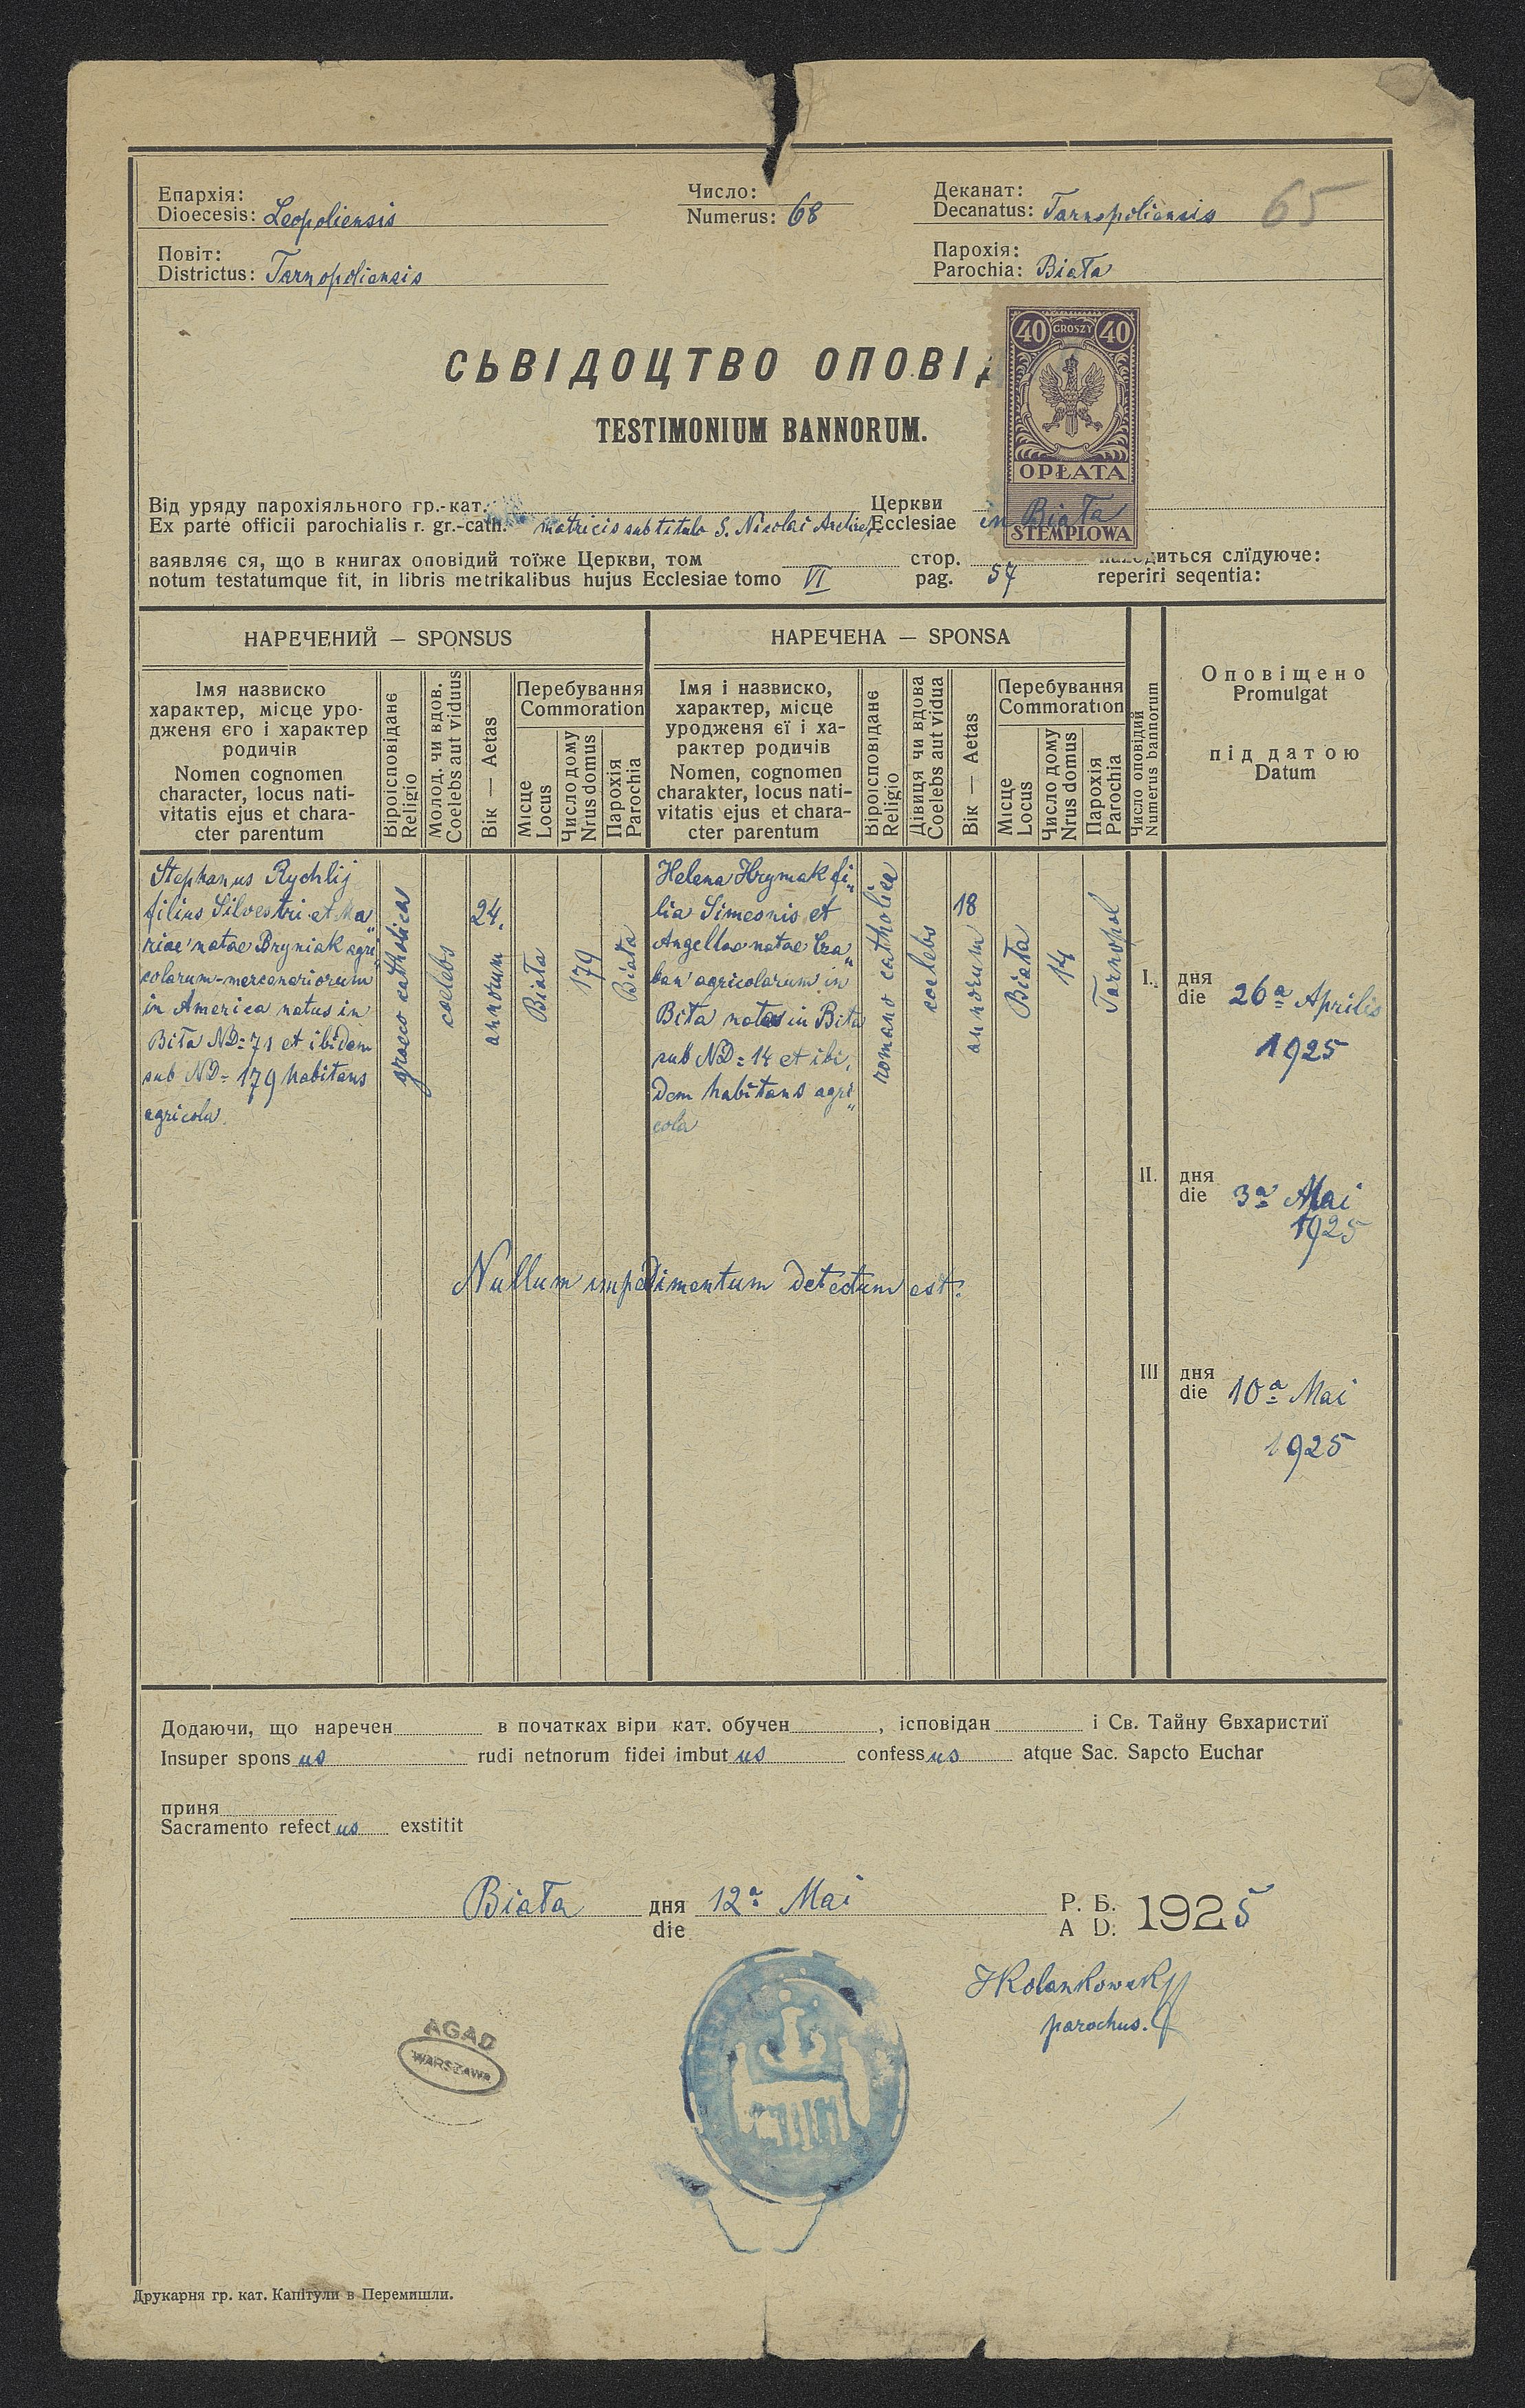 Епархія:
Dioecesis: Leopoliensis
Число:
Numerus: 68
Деканат:
Decanatus: Tarnopoliensis 65
Повіт:
Districtus: Tarnopoliensis
Парохія:
Parochia: Biała
40 GROSZY 40
СЬВІДОЦТВО ОПОВІД
TESTIMONIUM BANNORUM.
OPŁATA
STEMPLOWA
Від уряду парохіяльного гр.-кат. Церкви
Ex parte officii parochialis r. gr.-cath. matricis sub titulo S. Nicolai Archiep. Ecclesiae in Biała
заявляє ся, що в книгах оповідий тоїже Церкви, том стор. находиться слїдуюче:
notum testatumque fit, in libris metrikalibus hujus Ecclesiae tomo VI pag. 57 reperiri seqentia:
НАРЕЧЕНИЙ — SPONSUS
НАРЕЧЕНА — SPONSA
Імя назвиско
характер, місце уро-
дженя єго і характер
родичів
Nomen cognomen
character, locus nati-
vitatis ejus et chara-
cter parentum
Віроісповіданє
Religio
Молод. чи вдов.
Coelebs aut viduus
Вік — Aetas
Перебування
Commoration
Місце
Locus
Число дому
Nrus domus
Парохія
Parochia
Імя і назвиско,
характер, місце
уродженя єї і ха-
рактер родичів
Nomen, cognomen
charakter, locus nati-
vitatis ejus et chara-
cter parentum
Віроісповіданє
Religio
Дївиця чи вдова
Coelebs aut vidua
Вік — Aetas
Перебування
Commoration
Місце
Locus
Число дому
Nrus domus
Парохія
Parochia
Число оповідий
Numerus bannorum
Оповіщено
Promulgat
під датою
Datum
Stephanus Rychlij
filius Silvestri et Ma„
riae natae Bryniak agri„
colarum-mercenariorum
in America natus in
Biła ND: 71 et ibidem
sub ND= 179 habitans
agricola
graeco catholicus
coelebs
24.
annorum
Biała
179
Biała
Helena Hrymak fi„
lia Simeonis et
Angellae natae Cza„
ban agricolarum in
Biła natas in Biła
sub ND= 14 et ibi„
dem habitans agri„
cola
romano catholica
coelebs
18
annorum
Biała
14
Tarnopol
I. дня
die 26ª Aprilis
1925
II. дня
die 3ª Mai
1925
Nullum impedimentum detectum est.
III дня
die 10ª Mai
1925
Додаючи, що наречен в початках віри кат. обучен , ісповідан і Св. Тайну Євхаристиї
Insuper spons us rudi netnorum fidei imbut us confess us atque Sac. Sapcto Euchar
приня
Sacramento refect us exstitit
Biała дня 12ª Mai Р. Б. 1925
die A D.
JKolankowskyj
parochus.
AGAD
WARSZAWA
Друкарня гр. кат. Капітули в Перемишли.